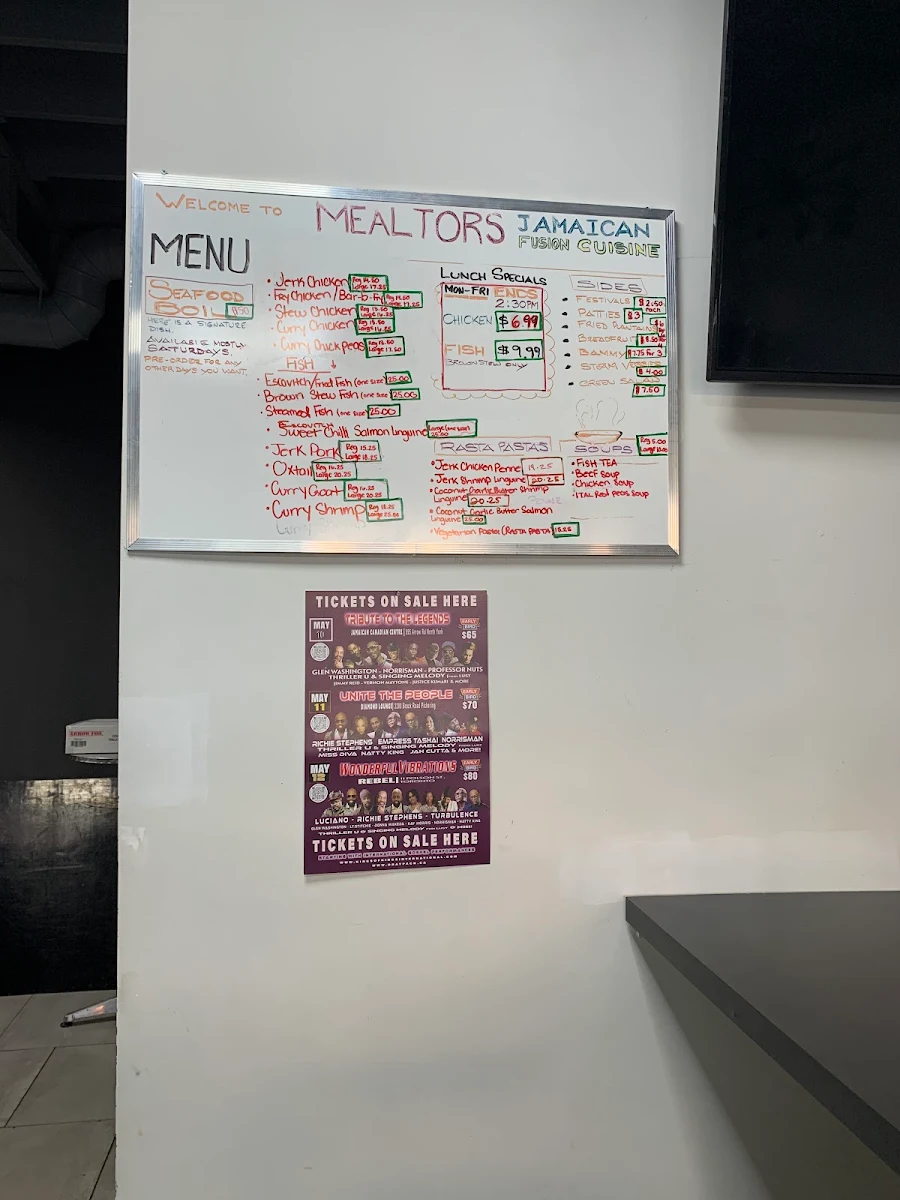 WELCOME TO MEALTORS JAMAICAN
FUSION CUISINE
MENU
SEAFOOD
BOIL $50
HERE IS A SIGNATURE
DISH.
AVAILABLE MOSTLY
SATURDAYS.
PRE-ORDER FOR ANY
OTHER DAYS YOU WANT.
• Jerk Chicken Reg 14.50
Large 17.25
• Fry Chicken / Bar-b-Fry
Large 17.25
• Stew Chicken
• Curry Chicken
• Curry Chick Peas
Large 17.50
FISH
• Escovitch/Fried Fish (one size) 25.00
• Brown Stew Fish (one size) 25.00
• Steamed Fish (one size) 25.00
• Sweet Chilli Salmon Linguine
25.00
• Jerk Pork Reg 15.25
Large 18.25
• Oxtail
Large 20.25
• Curry Goat
Large 20.25
• Curry Shrimp Reg 18.25
Large 25.00
LUNCH SPECIALS
MON-FRI ENDS
2:30PM
CHICKEN $6.99
FISH $9.99
BROWN STEW ONLY
SIDES
FESTIVALS $2.50
each
PATTIES $3
FRIED PLANTAINS
BREADFRUIT
BAMMY $7.75 FOR 3
STEAM
$4.00
GREEN SALAD
$7.50
RASTA PASTAS
• Jerk Chicken Penne 19.25
• Jerk Shrimp Linguine 20.25
• Coconut Garlic Butter Shrimp
Linguine 20.25
• Coconut Garlic Butter Salmon
Linguine 25.00
• Vegetarian Pasta (RASTA PASTA)
SOUPS Reg 5.00
• FISH TEA
• Beef Soup
• Chicken Soup
• ITAL Red Peas Soup
TICKETS ON SALE HERE
MAY
10
TRIBUTE TO THE LEGENDS
JAMAICAN CANADIAN CENTRE | 995 Arrow Rd North York
EARLY
BIRD
$65
GLEN WASHINGTON - NORRISMAN - PROFESSOR NUTS
THRILLER U & SINGING MELODY
MAY
11
UNITE THE PEOPLE
DIAMOND LOUNGE
EARLY
BIRD
$70
RICHIE STEPHENS EMPRESS TASHAI NORRISMAN
THRILLER U & SINGING MELODY
MISS DIVA NATTY KING JAH CUTTA & MORE!
MAY
WONDERFUL VIBRATIONS
REBEL
TORONTO
EARLY
BIRD
$80
LUCIANO - RICHIE STEPHENS - TURBULENCE
THRILLER U & SINGING MELODY
TICKETS ON SALE HERE